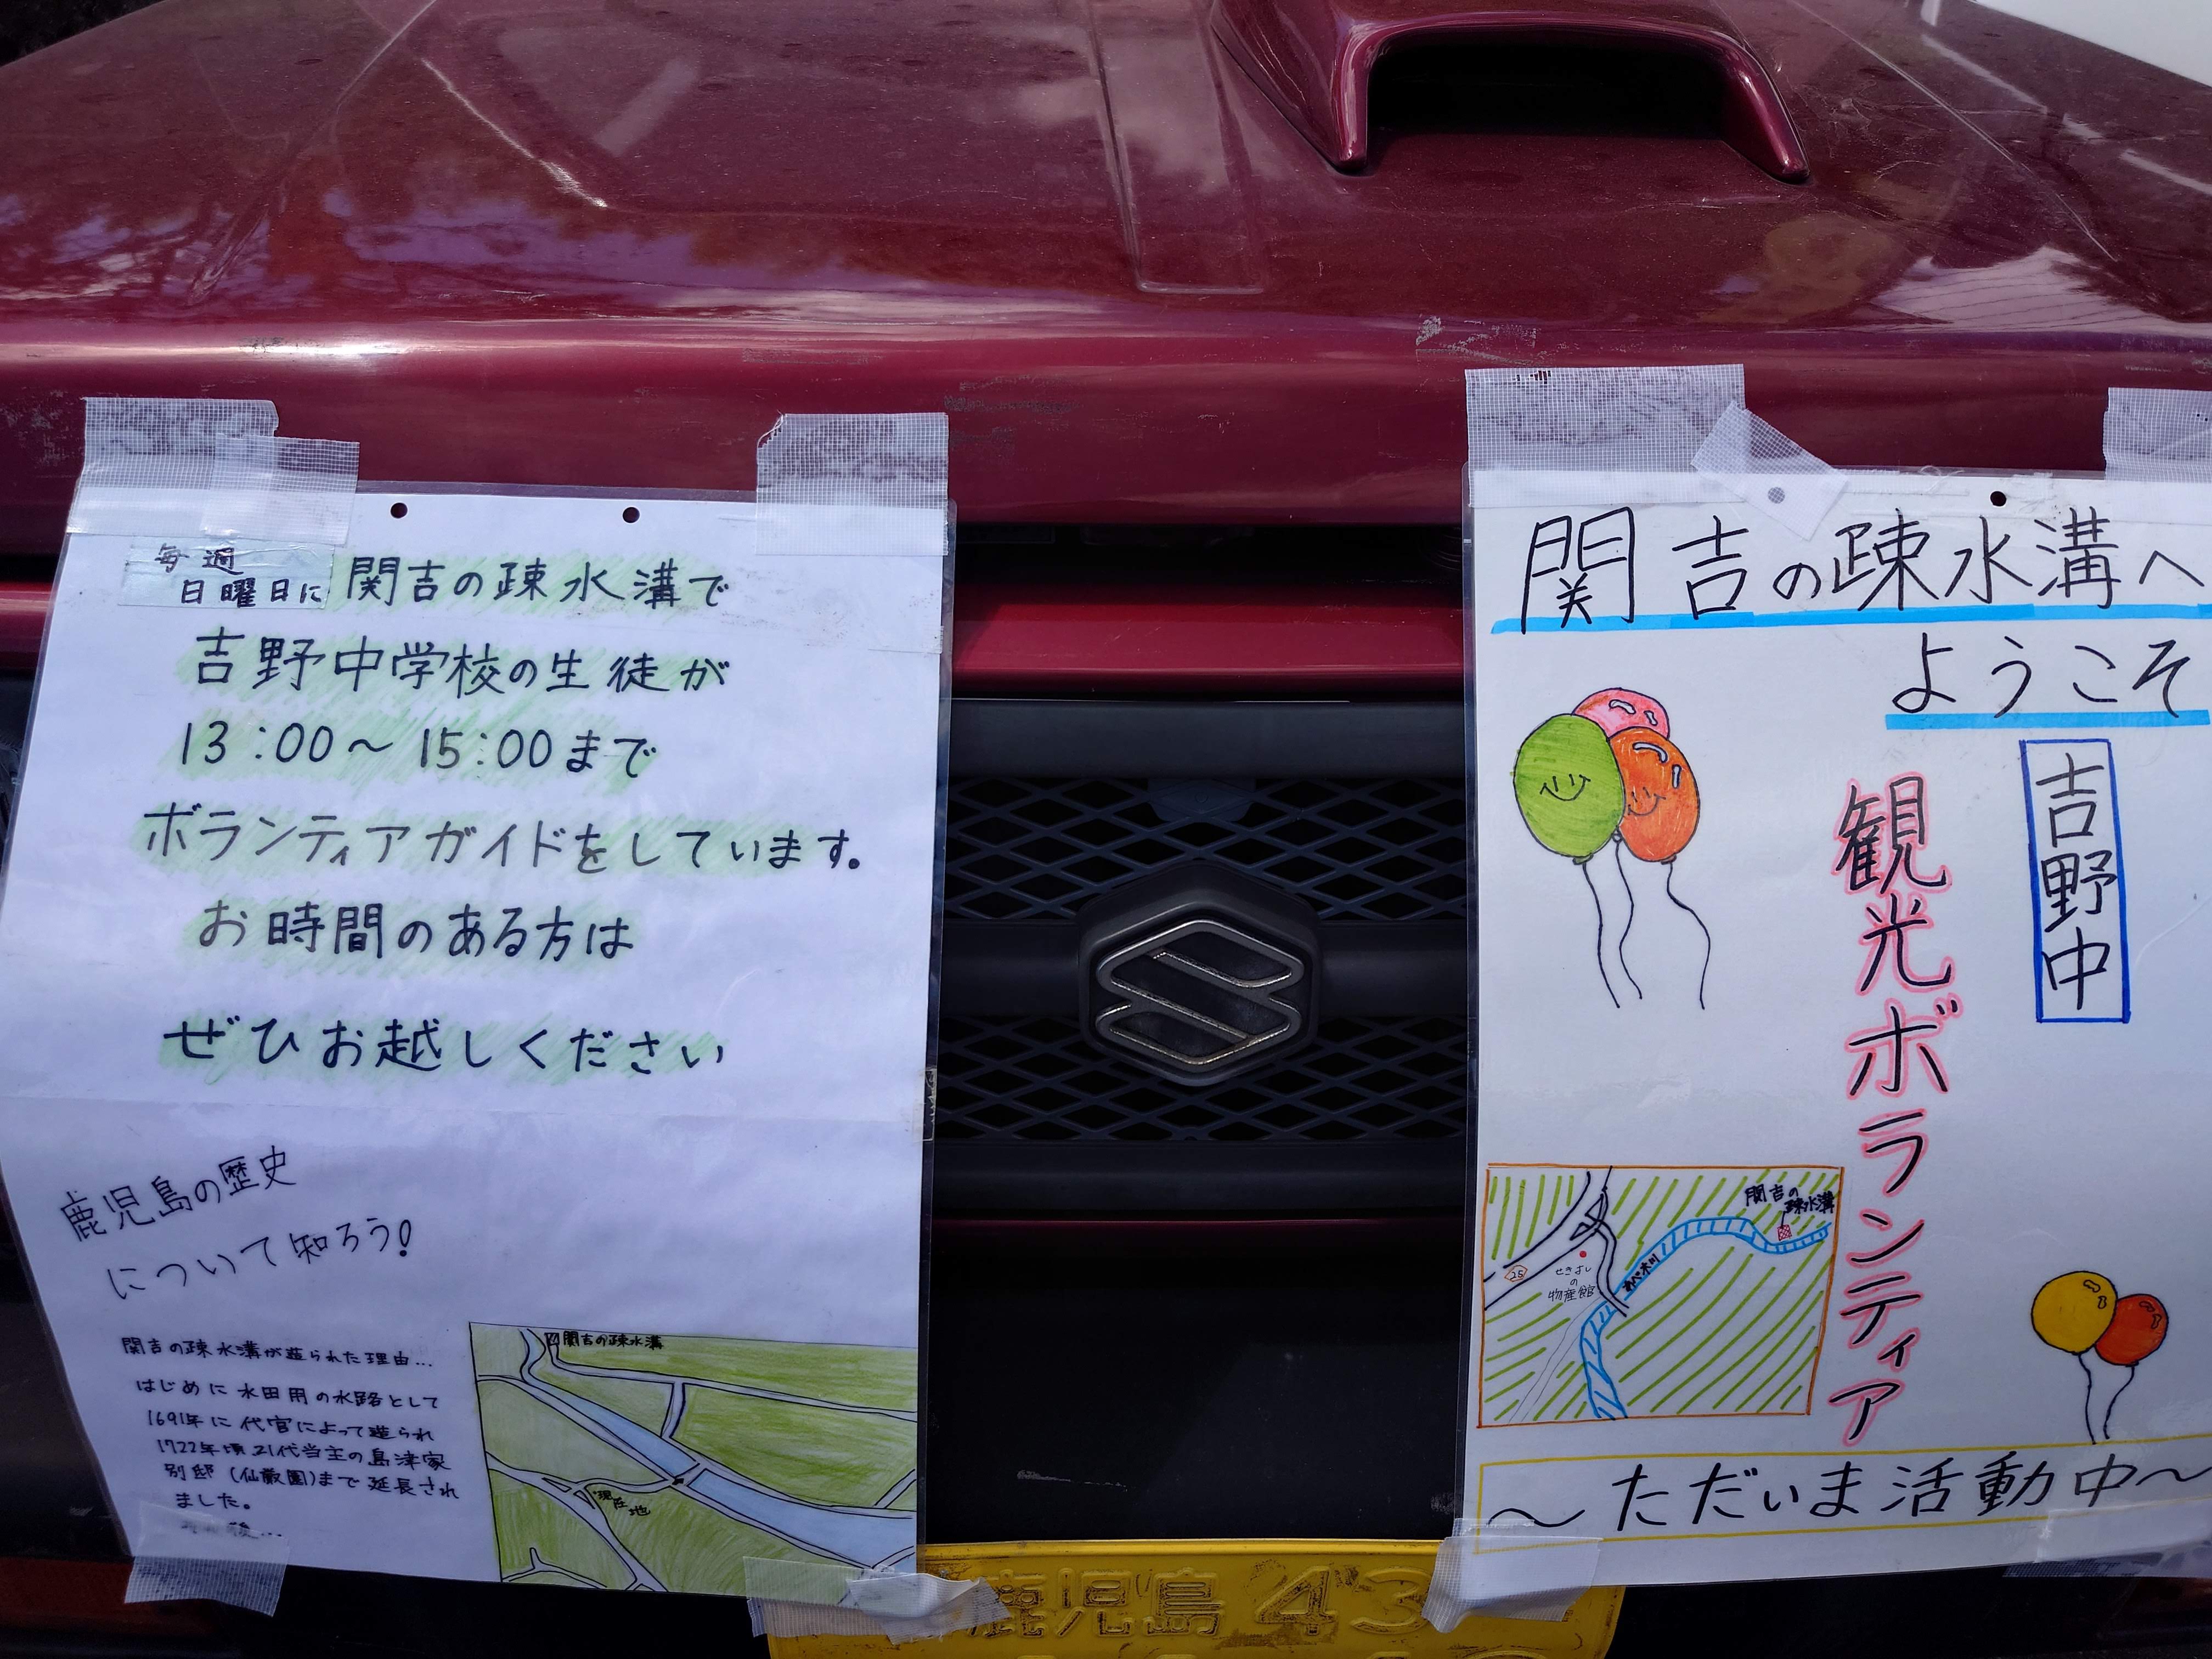 毎週
日曜日に 関吉の疎水溝で
吉野中学校の生徒が
13:00～15:00まで
ボランティアガイドをしています。
お時間のある方は
ぜひお越しください
鹿児島の歴史
について知ろう!
関吉の疎水溝が造られた理由...
はじめに水田用の水路として
1691年に代官によって造られ
1722年頃21代当主の島津家
別邸(仙厳園)まで延長され
ました。
関吉の疎水溝
現在地
関吉の疎水溝へ
ようこそ
吉野中
観光ボランティア
関吉の
疎水溝
25
せきよし
の
物産館
～ただいま活動中～
鹿児島 43